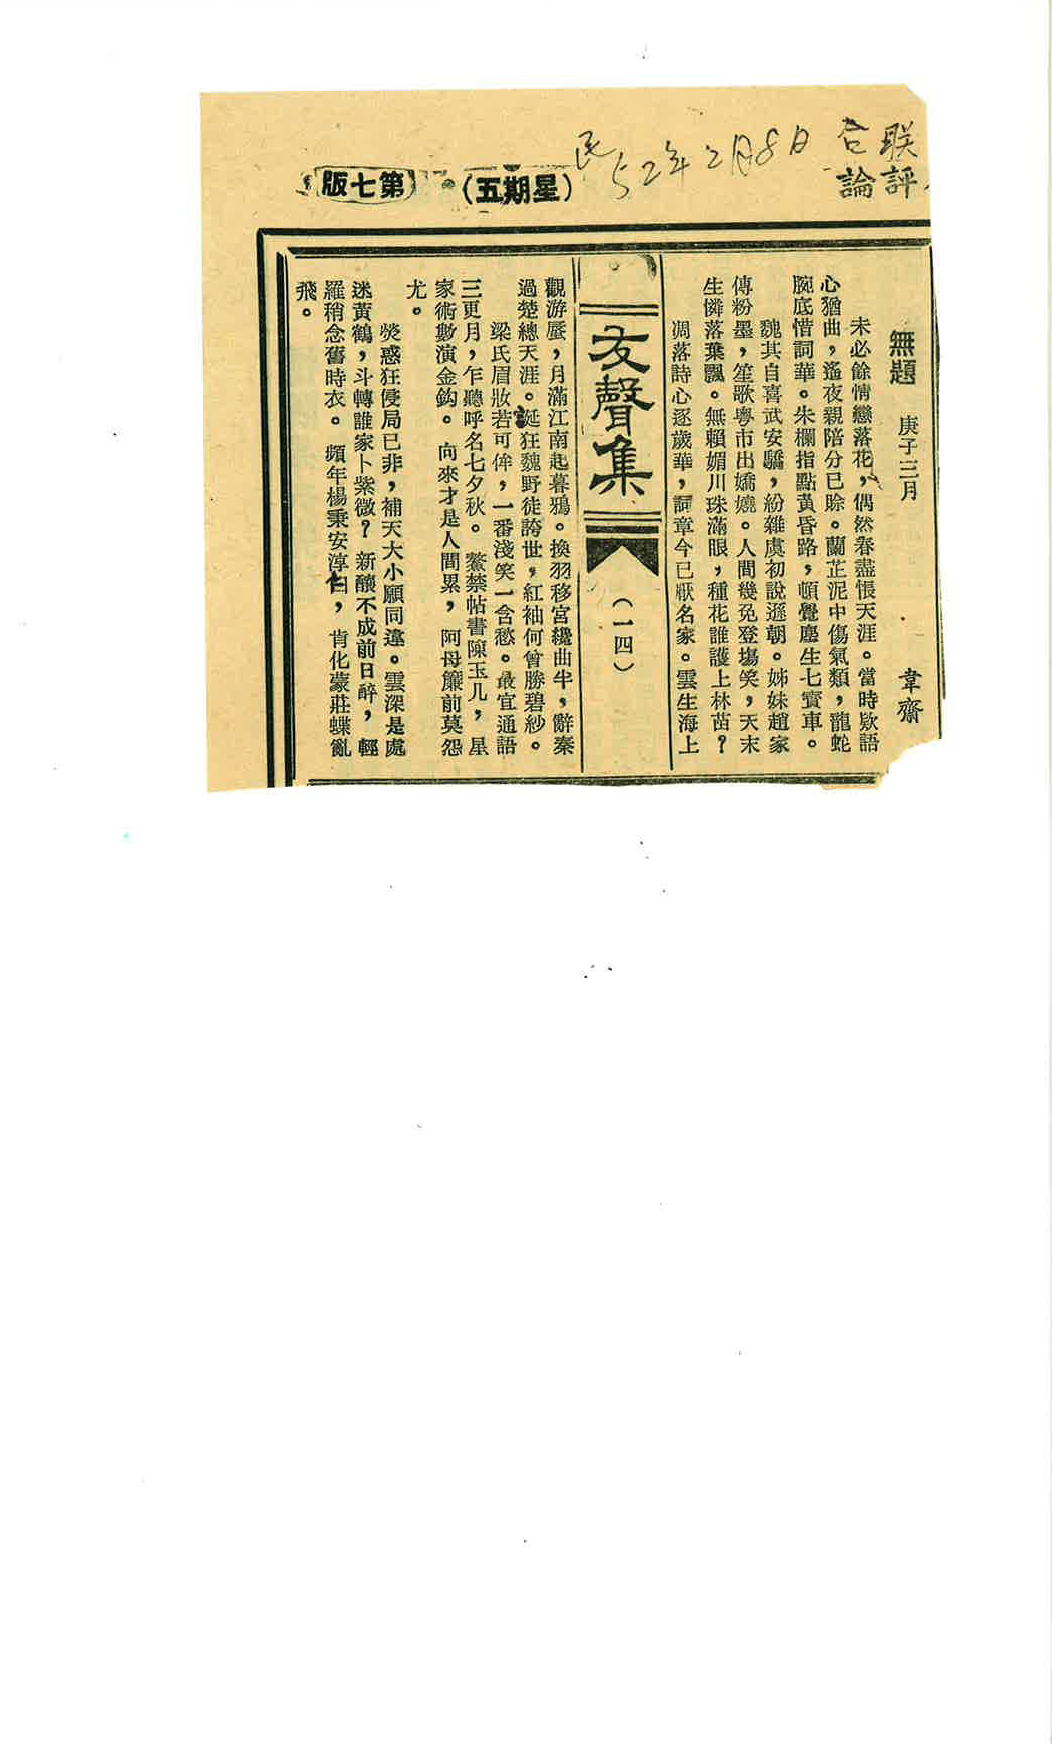 聯合
評論
民52年2月8日
(星期五)
第七版
無題 庚子三月 韋齋
未必餘情戀落花,偶然春盡悵天涯。當時欵語
心猶曲,遙夜親陪分已賒。蘭芷泥中傷氣類,龍蛇
腕底惜詞華。朱欄指點黃昏路,頓覺塵生七寶車。
魏其自喜武安驕,紛雜虞初說遜朝。姊妹趙家
傳粉墨,笙歌粵市出嬌嬈。人間幾免登場笑,天末
生憐落葉飄。無賴媚川珠滿眼,種花誰護上林苗?
凋落詩心逐歲華,詞章今已厭名家。雲生海上
友聲集
(一四)
觀游蜃,月滿江南起暮鴉。換羽移宮纔曲半,辭秦
過楚總天涯。誕狂魏野徒誇世,紅袖何曾勝碧紗。
梁氏眉妝若可侔,一番淺笑一含愁。最宜通語
三更月,乍聽呼名七夕秋。鰲禁帖書陳玉几,星
家術數演金鈎。向來才是人間累,阿母簾前莫怨
尤。
熒惑狂侵局已非,補天大小願同違。雲深是處
迷黃鶴,斗轉誰家卜紫微?新釀不成前日醉,輕
羅稍念舊時衣。頻年楊秉安淳白,肯化蒙莊蝶亂
飛。